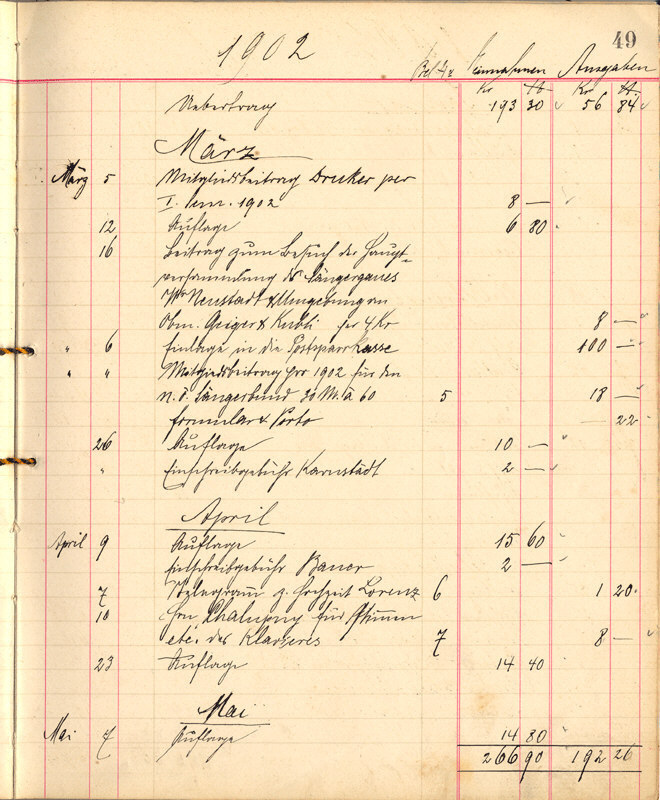 49
1902
Bel. No Einnahmen Ausgaben
Kr h Kr h
Uebertrag 193 30 56 84
März
März 5 Mitgliedsbeitrag Drucker per
I. Sem. 1902 8 —
12 Auflage 6 80
16 Beitrag zum Besuch der Haupt-
versammlung des Sängergaues
Wr Neustadt & Umgebung an
Obm. Geiger & Kubli per 4 Kr 8 —
" 6 Einlage in die Postsparkasse 100 —
" " Mitgliedsbeitrag pro 1902 für den
n. ö. Sängerbund 30 M. à 60 5 18 —
Formular & Porto — 22
26 Auflage 10 —
" Einschreibgebühr Karnstädt 2 —
April
April 9 Auflage 15 60
Einschreibgebühr Bauer 2 —
7 Telegramm z. Hochzeit Lorenz 6 1 20
10 Hrn Chalupny für Stimmen
etc. des Klavieres 7 8 —
23 Auflage 14 40
Mai
Mai 7 Auflage 14 80
266 90 192 26